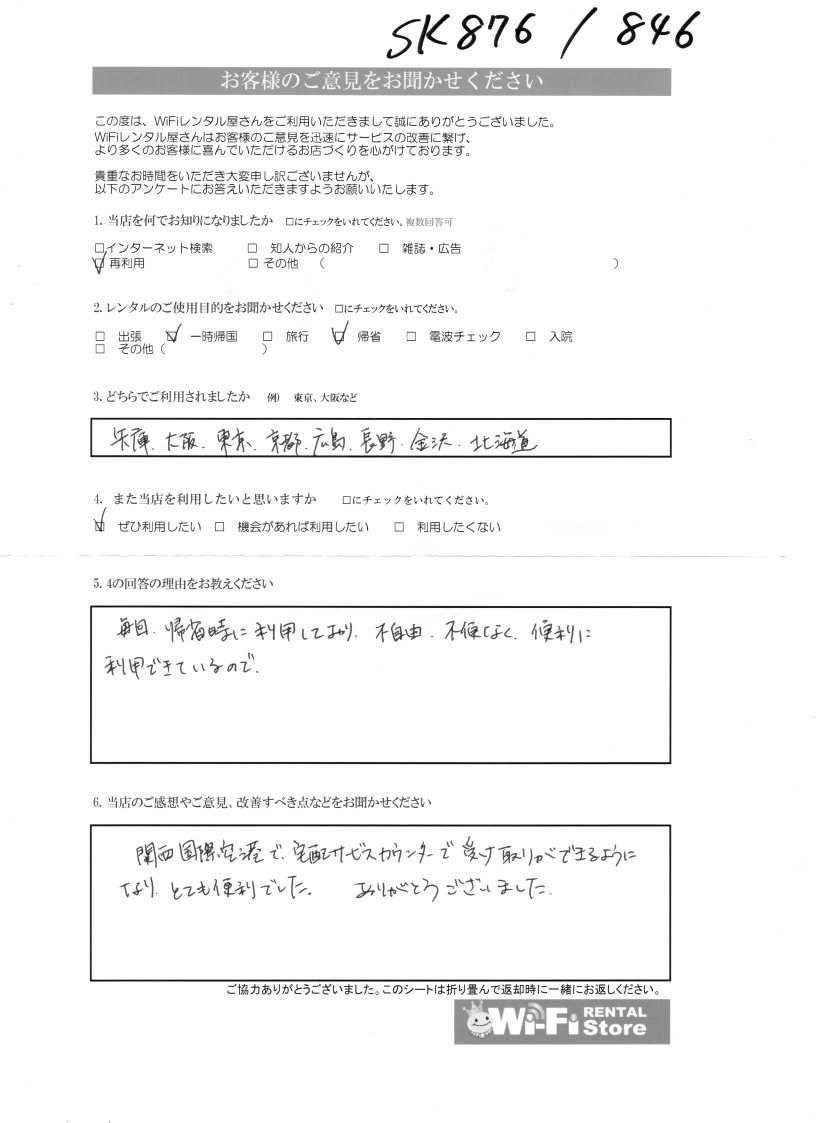 SK876 / 846
お客様のご意見をお聞かせください
この度は、WiFiレンタル屋さんをご利用いただきまして誠にありがとうございました。
WiFiレンタル屋さんはお客様のご意見を迅速にサービスの改善に繋げ、
より多くのお客様に喜んでいただけるお店づくりを心がけております。
貴重なお時間をいただき大変申し訳ございませんが、
以下のアンケートにお答えいただきますようお願いいたします。
1. 当店を何でお知りになりましたか □にチェックをいれてください。複数回答可
□インターネット検索 □ 知人からの紹介 □ 雑誌・広告
☑再利用 □その他 ( )
2. レンタルのご使用目的をお聞かせください □にチェックをいれてください。
□ 出張 ☑ 一時帰国 □ 旅行 ☑ 帰省 □ 電波チェック □ 入院
□ その他 ( )
3. どちらでご利用されましたか 例) 東京、大阪など
兵庫、大阪、東京、京都、広島、長野、金沢、北海道
4. また当店を利用したいと思いますか □にチェックをいれてください。
☑ ぜひ利用したい □ 機会があれば利用したい □ 利用したくない
5. 4の回答の理由をお教えください
毎回、帰省時に利用しており、不自由、不便なく、便利に
利用できているので。
6. 当店のご感想やご意見、改善すべき点などをお聞かせください
関西国際空港で、宅配サービスカウンターで受け取りができるように
なり、とても便利でした。 ありがとうございました。
ご協力ありがとうございました。このシートは折り畳んで返却時に一緒にお返しください。
Wi-Fi RENTAL Store